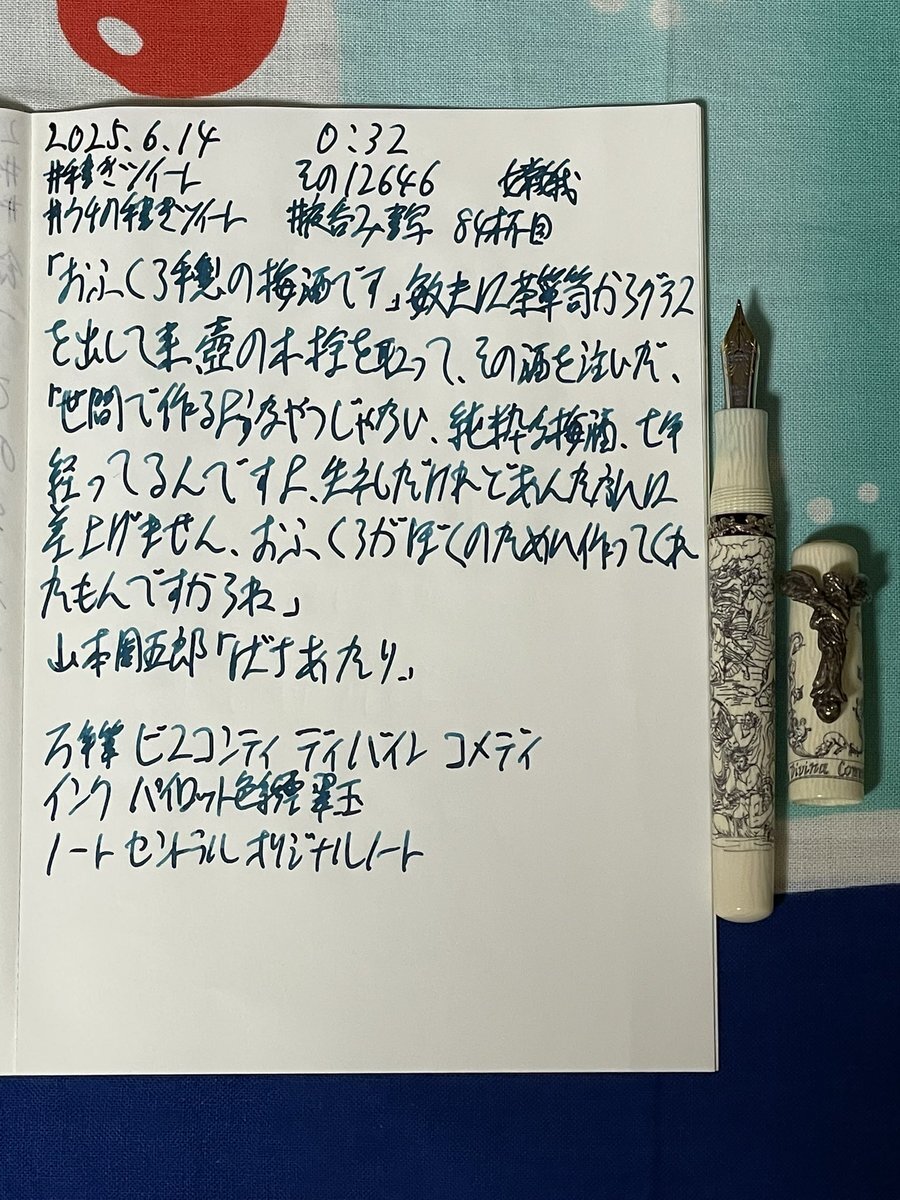 2025.6.14 0:32
#手書きツイート その12646
#ウチの手書きツイート #夜呑み書写 84杯目
「おふくろ手製の梅酒です」敏夫は茶箪笥からグラス
を出して来、壺の木栓を取って、その酒を注いだ、
「世間で作るようなやつじゃない、純粋な梅酒、七年
経ってるんですよ、失礼だけれどあんた方には
差上げません、おふくろがぼくのために作ってくれ
たもんですからね」
山本周五郎「ばちあたり」
万年筆 ビスコンティ ディバイン コメディ
インク パイロット色彩雫 翠玉
ノート セントラル オリジナルノート
Divina Com